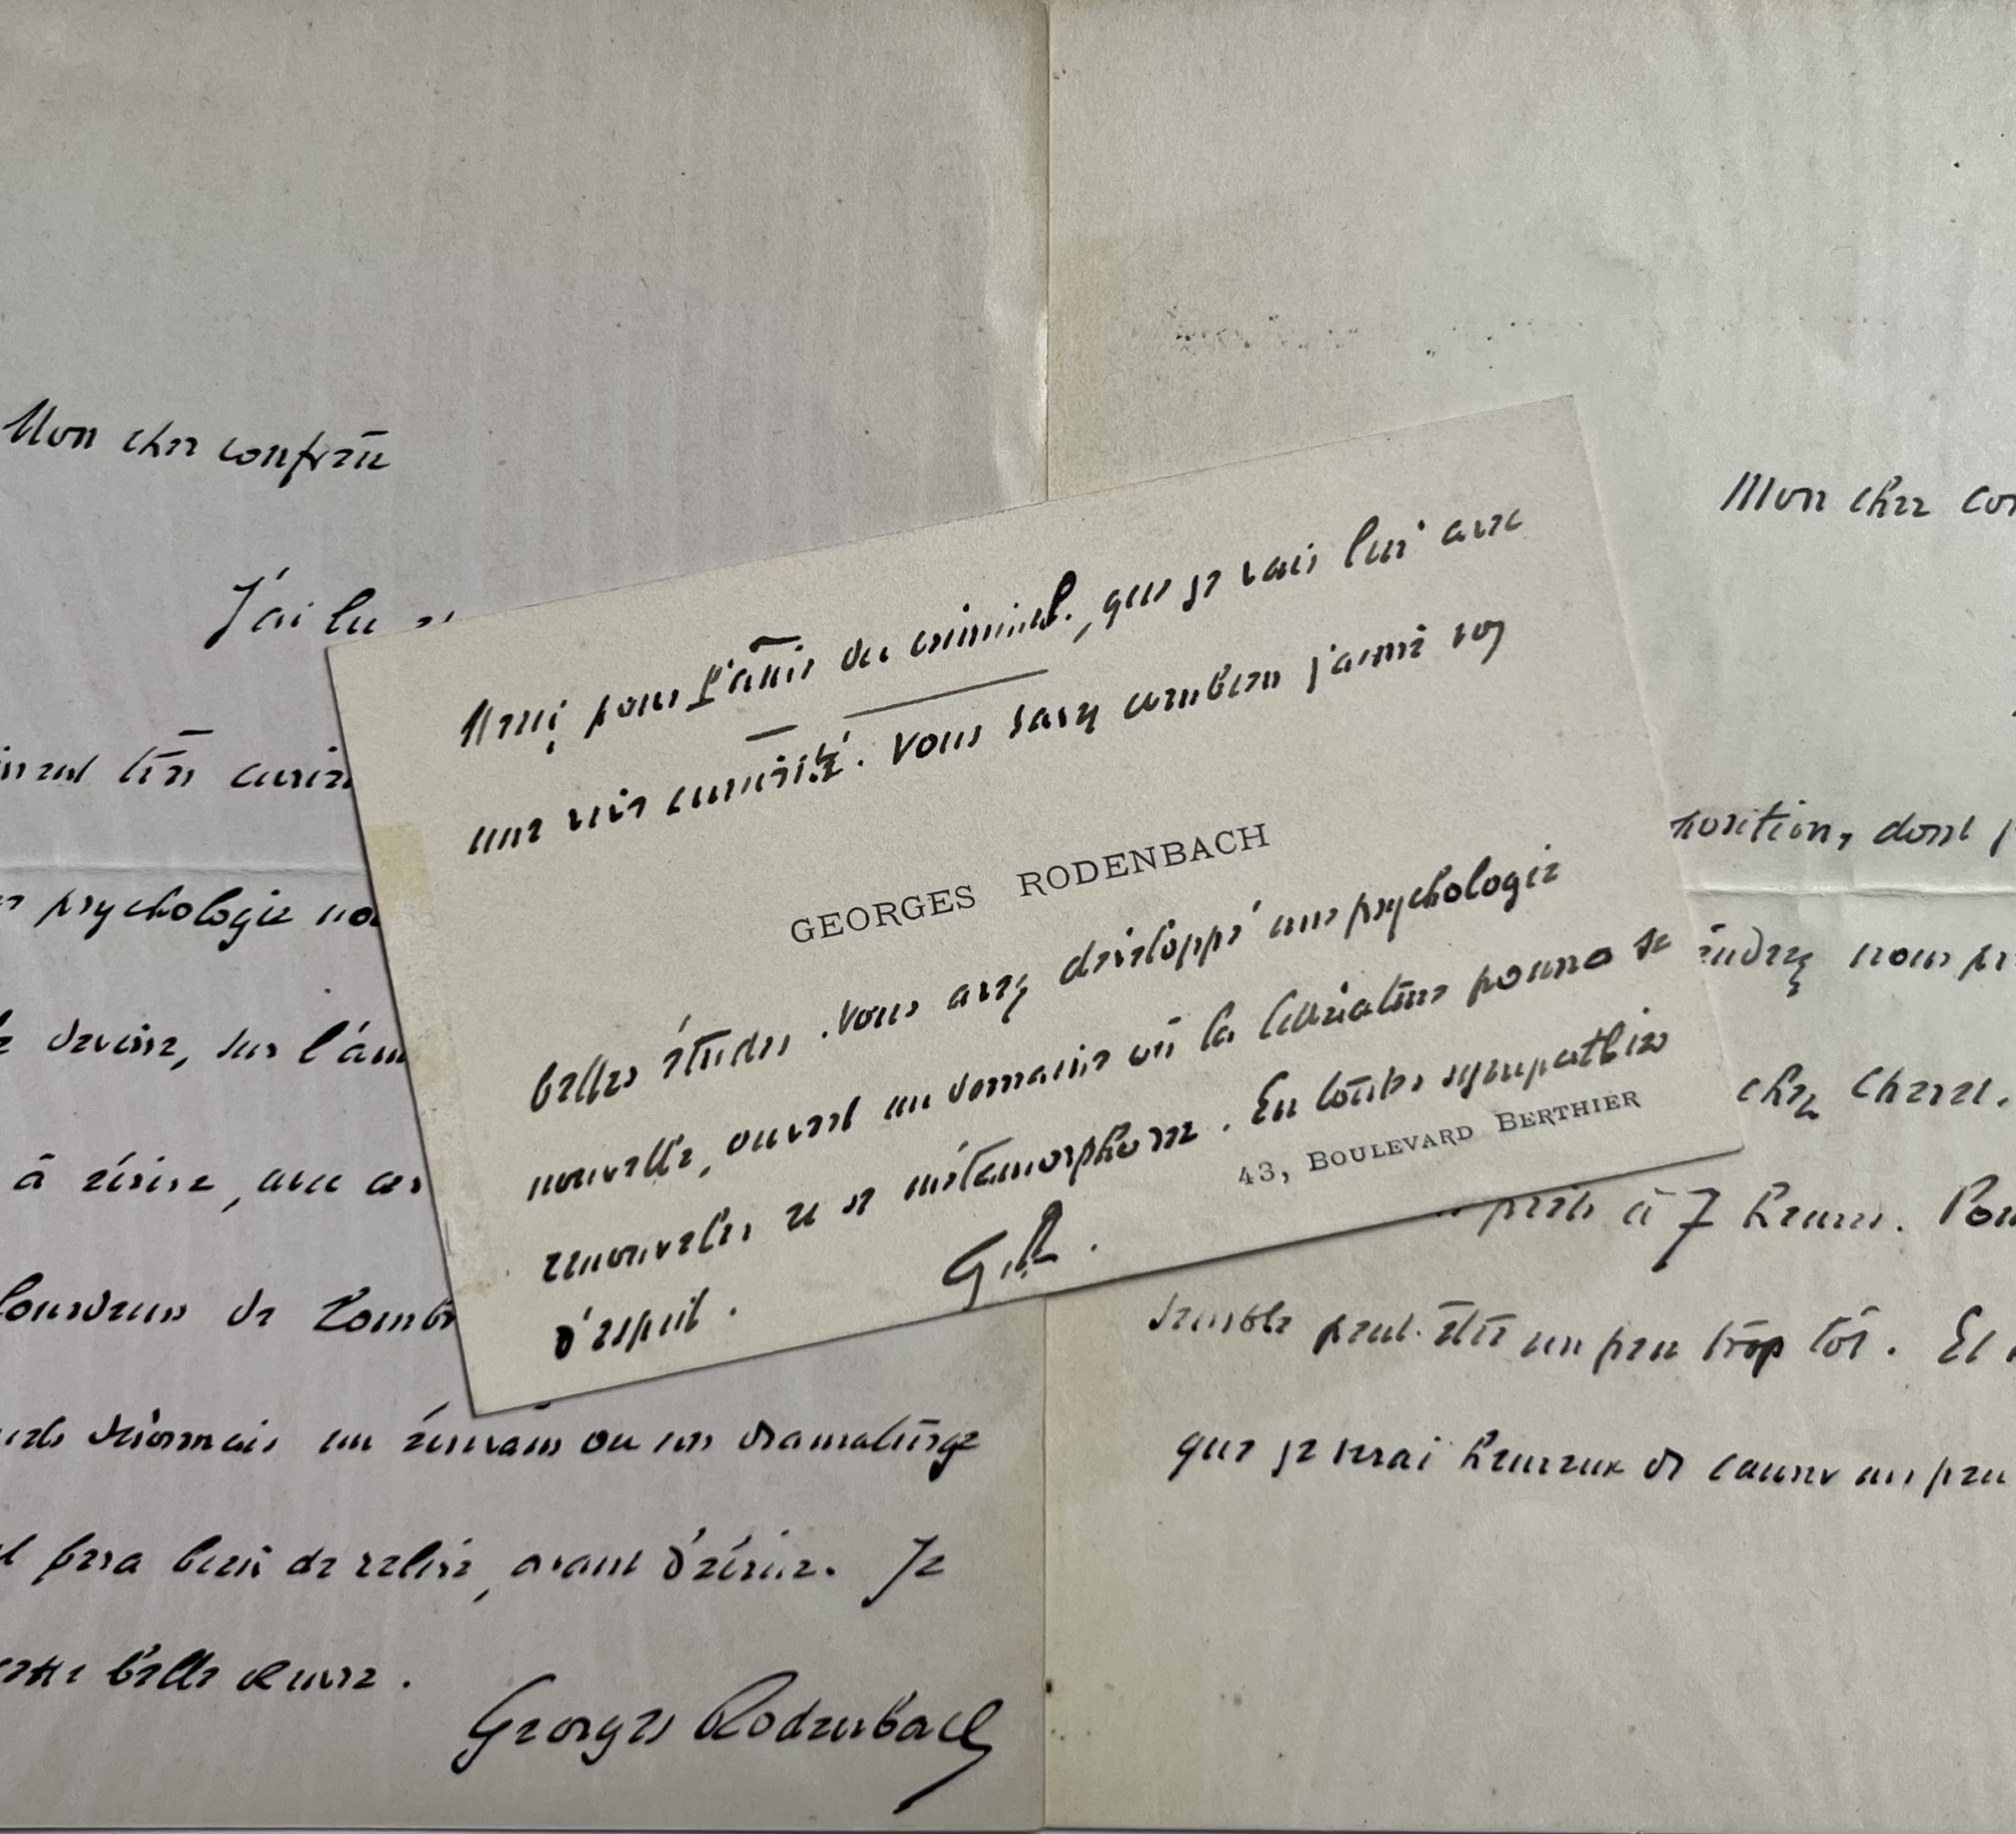 Mon cher confrère
J'ai lu
très curieu
psychologie nou
devine, sur l'âm
à écrire, avec ces
de Lombr
désormais un écrivain ou un dramaturge
fera bien de relire, avant d'écrire. Je
cette belle œuvre.
Georges Rodenbach
Merci pour l'amie du criminel, que je vais lire avec
une vive curiosité. Vous savez combien j'aime vos
GEORGES RODENBACH
belles études. Vous avez développé une psychologie
nouvelle, ouvert un domaine où la littérature pourra se
renouveler et se métamorphoser. En toutes sympathies
43, BOULEVARD BERTHIER
d'esprit.
G.R.
Mon cher con
position, dont j
nous pr
chez Charet.
à 7 heures. Pou
semble peut-être un peu trop tôt. Et
que je serai heureux de causer un peu